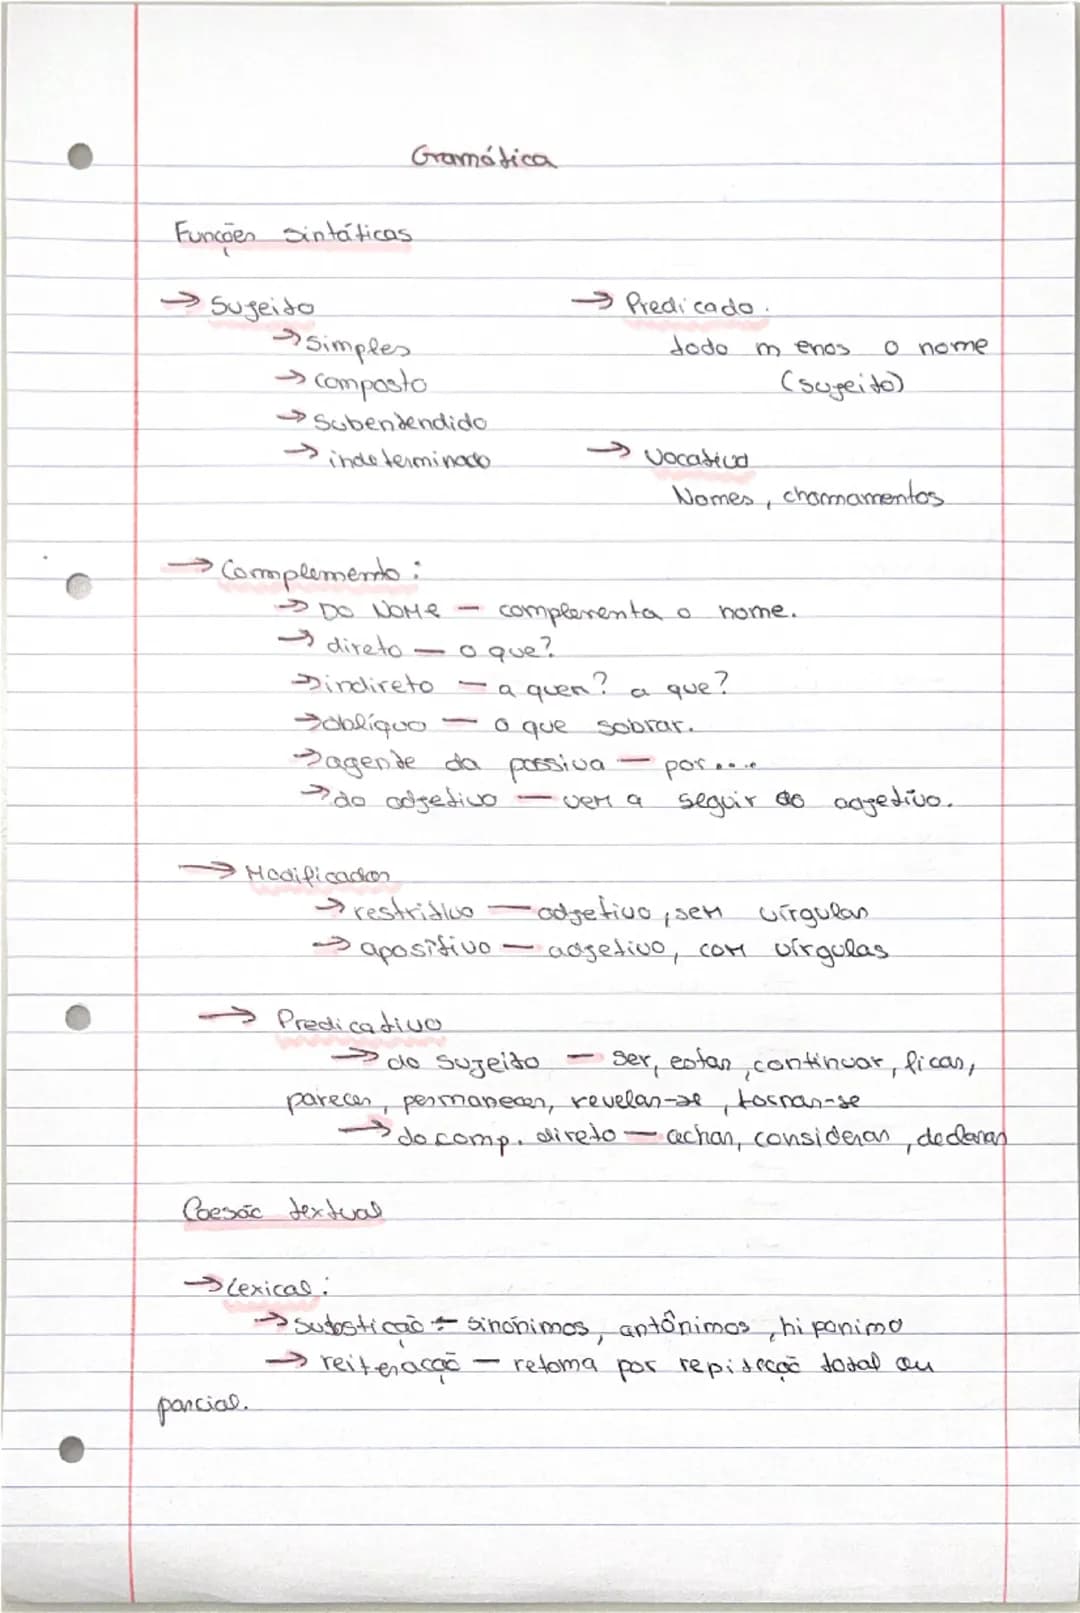 Gramática
Funções sintáticas
→ Sujeito
→ simples
→ composto
→ Subentendido
→ indeterminado
→ Predicado.
todo menos o nome
(sujeito)
→ Vocativo
Nomes, chamamentos
→ Complemento:
→ DO NOME - complementa o nome.
→ direto - o que?
→ indireto - a quem? a que?
→ oblíquo - o que sobrar.
→ agente da passiva - por....
→ do adjetivo - vem a seguir ao adjetivo.
→ Modificador
→ restritivo - adjetivo, sem vírgulas
→ apositivo - adjetivo, com vírgulas
→ Predicativo
→ do sujeito - ser, estar, continuar, ficar,
parecer, permanecer, revelar-se, tornar-se
→ do comp. direto - achar, considerar, declarar
Coesão textual
→ Lexical:
→ substição - sinónimos, antônimos, hiponimo
→ reiteração - retoma por repiteção total ou
parcial.